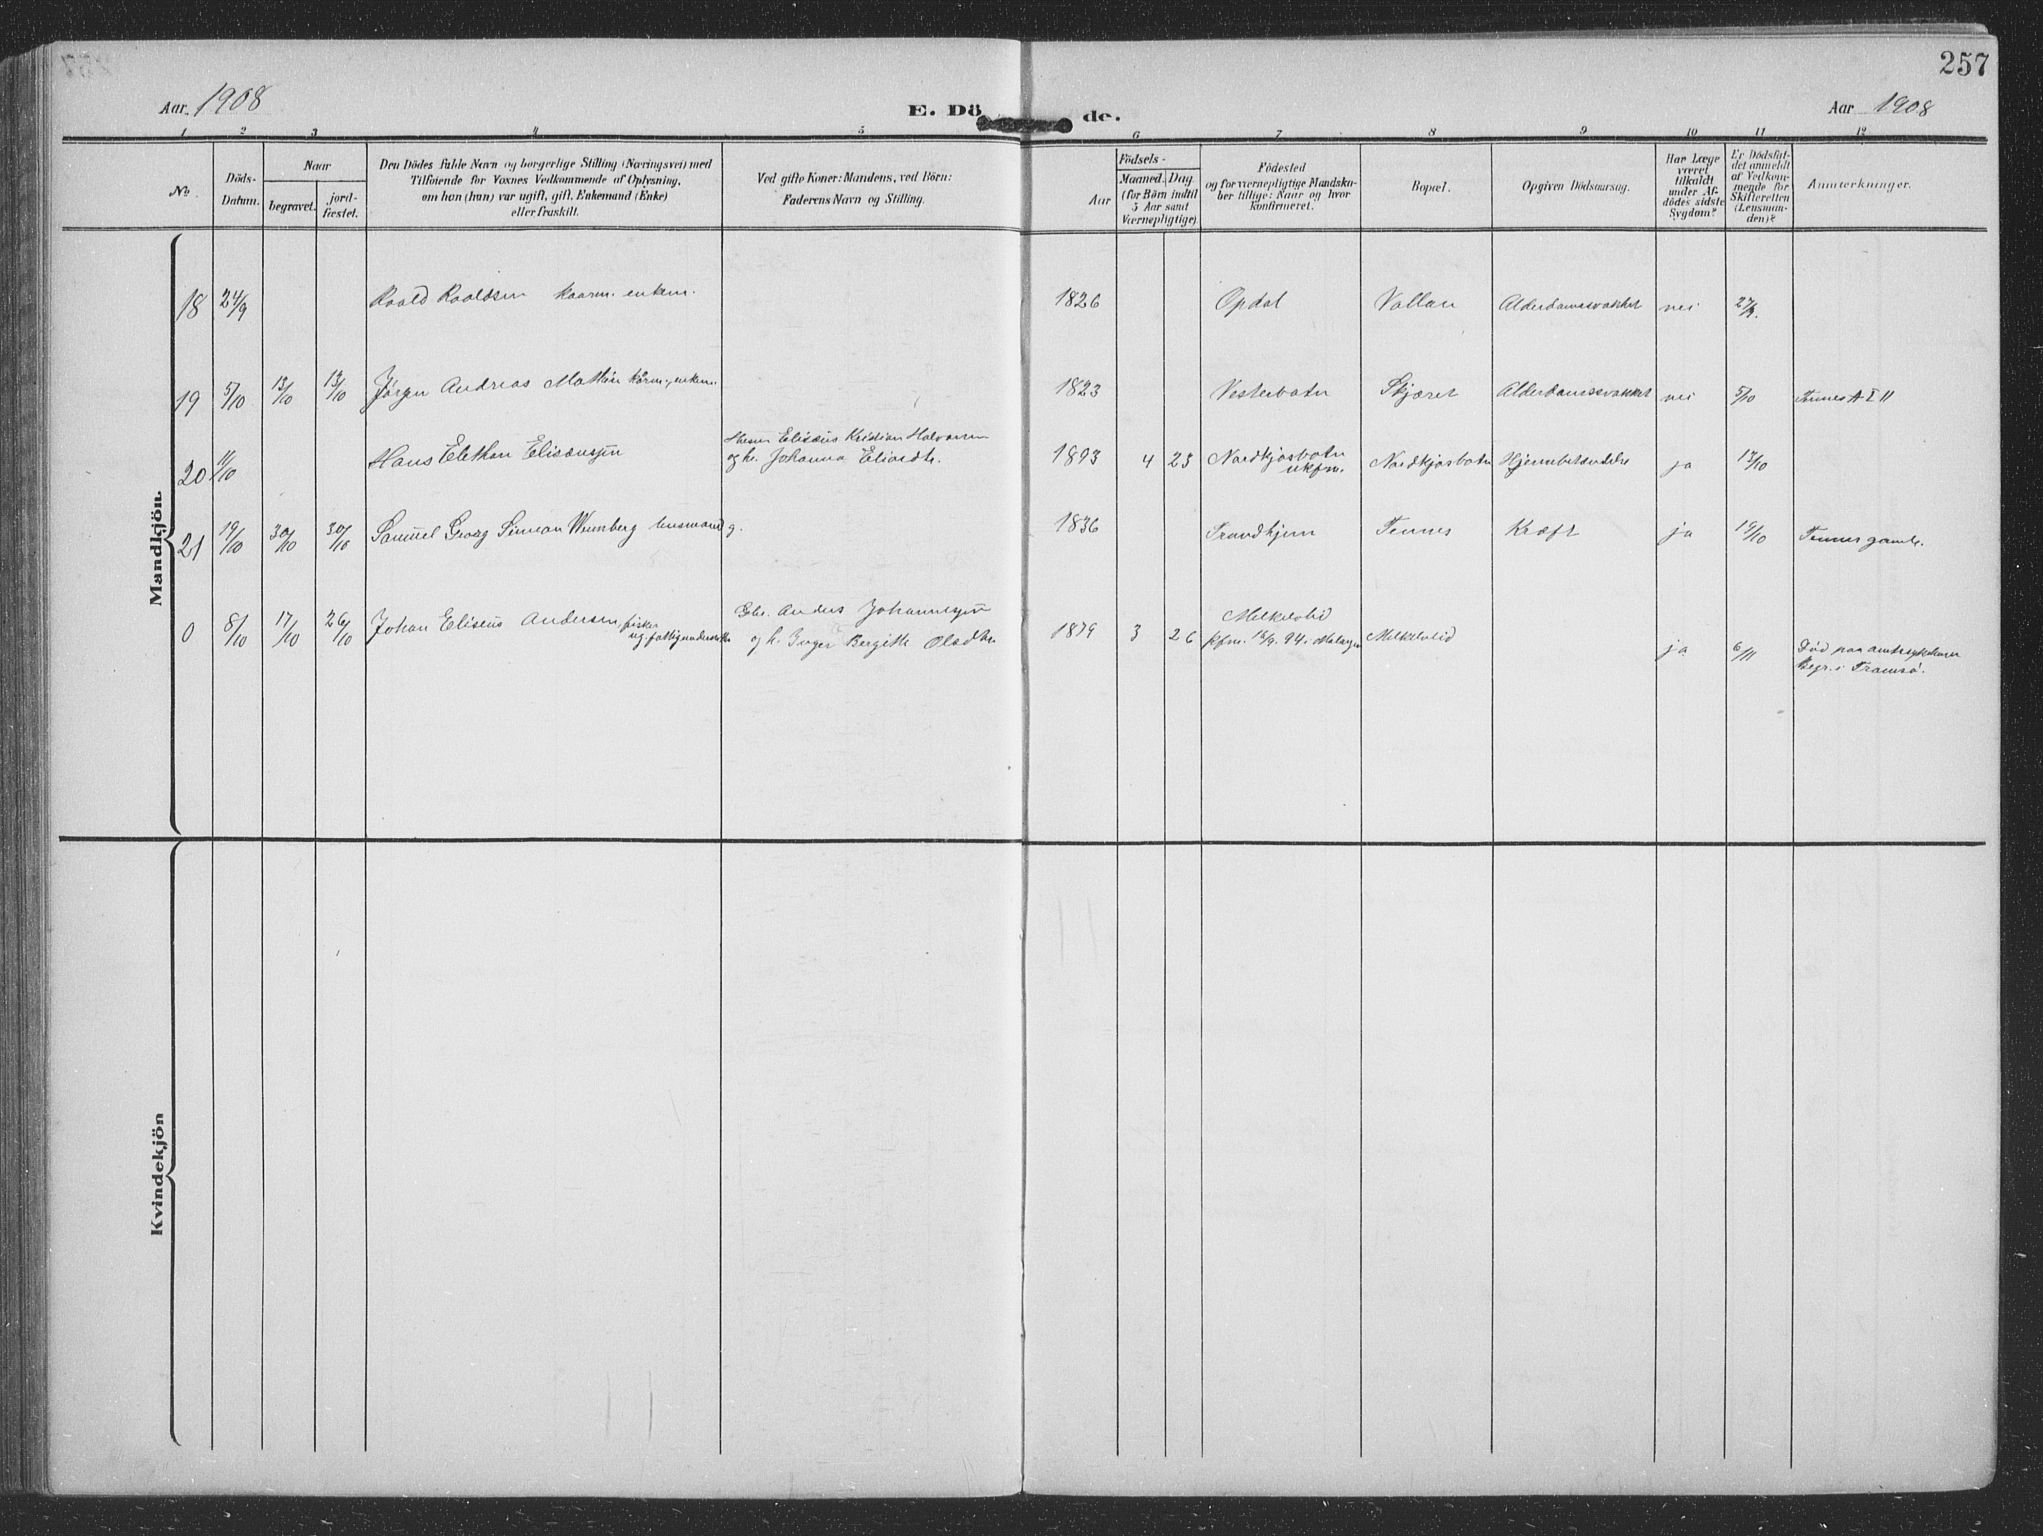 257
Aar 1908
E. Dö de.
Aar 1908
1 2 3 4 5 6 7 8 9 10 11 12
No.
Döds-
Datum.
Naar
begravet.
jord-
fæstet.
Den Dödes fulde Navn og borgerlige Stilling (Næringsvei) med
Tilföiende for Voxnes Vedkommende af Oplysning,
om han (hun) var ugift, gift, Enkemand (Enke)
eller fraskilt.
Ved gifte Koner: Mandens, ved Börn:
Faderens Navn og Stilling.
Födsels-
Aar
Maaned. Dag
(for Börn indtil
5 Aar samt
Værnepligtige)
Födested
og for værnepligtige Mandska-
ber tillige: Naar og hvor
konfirmeret.
Bopæl.
Opgiven Dödsaarsag.
Har Læge
været
tilkaldt
under Af-
dödes sidste
Sygdom?
Er Dödsfal-
det anmeldt
af Vedkom-
mende for
Skifteretten
(Lensman-
den)?
Anmærkninger.
Mandkjön.
18 24/9 Roald Roaldsen kaarm. enkem. 1826 Opdal Vollan Alderdomssvakhet nei 27/9.
19 5/10 13/10 13/10 Jörgen Andreas Mathis kårm., enkem. 1823 Vesterbotn Skjæret Alderdomssvakhet nei 5/10 Tennes A I 11
20 11/10 Hans Elethan Elisæussen
Kristian Halvorsen
og h. Johanna
1893 4 23 Nordkjosbotn
ukfm.
Nordkjosbotn Hjernebetændelse ja 17/10
21 19/10 30/10 30/10 Samuel Georg Simon Wennberg husmand g. 1836 Trondhjem Tennes Kræft ja 19/10 Tennes gamle.
0 8/10 17/10 26/10 Johan Eliseus Andersen, fisker
ug. fattigunderst.
Gbr. Anders Johannessen
og h. Inger Bergitte Olsdtr.
1879 3 26 Melkelvlid
kfm. 94 i Malangen
Melkelvlid
ja 6/11 Död paa amtssykehuset
Begr. i Tromsö.
Kvindekjön